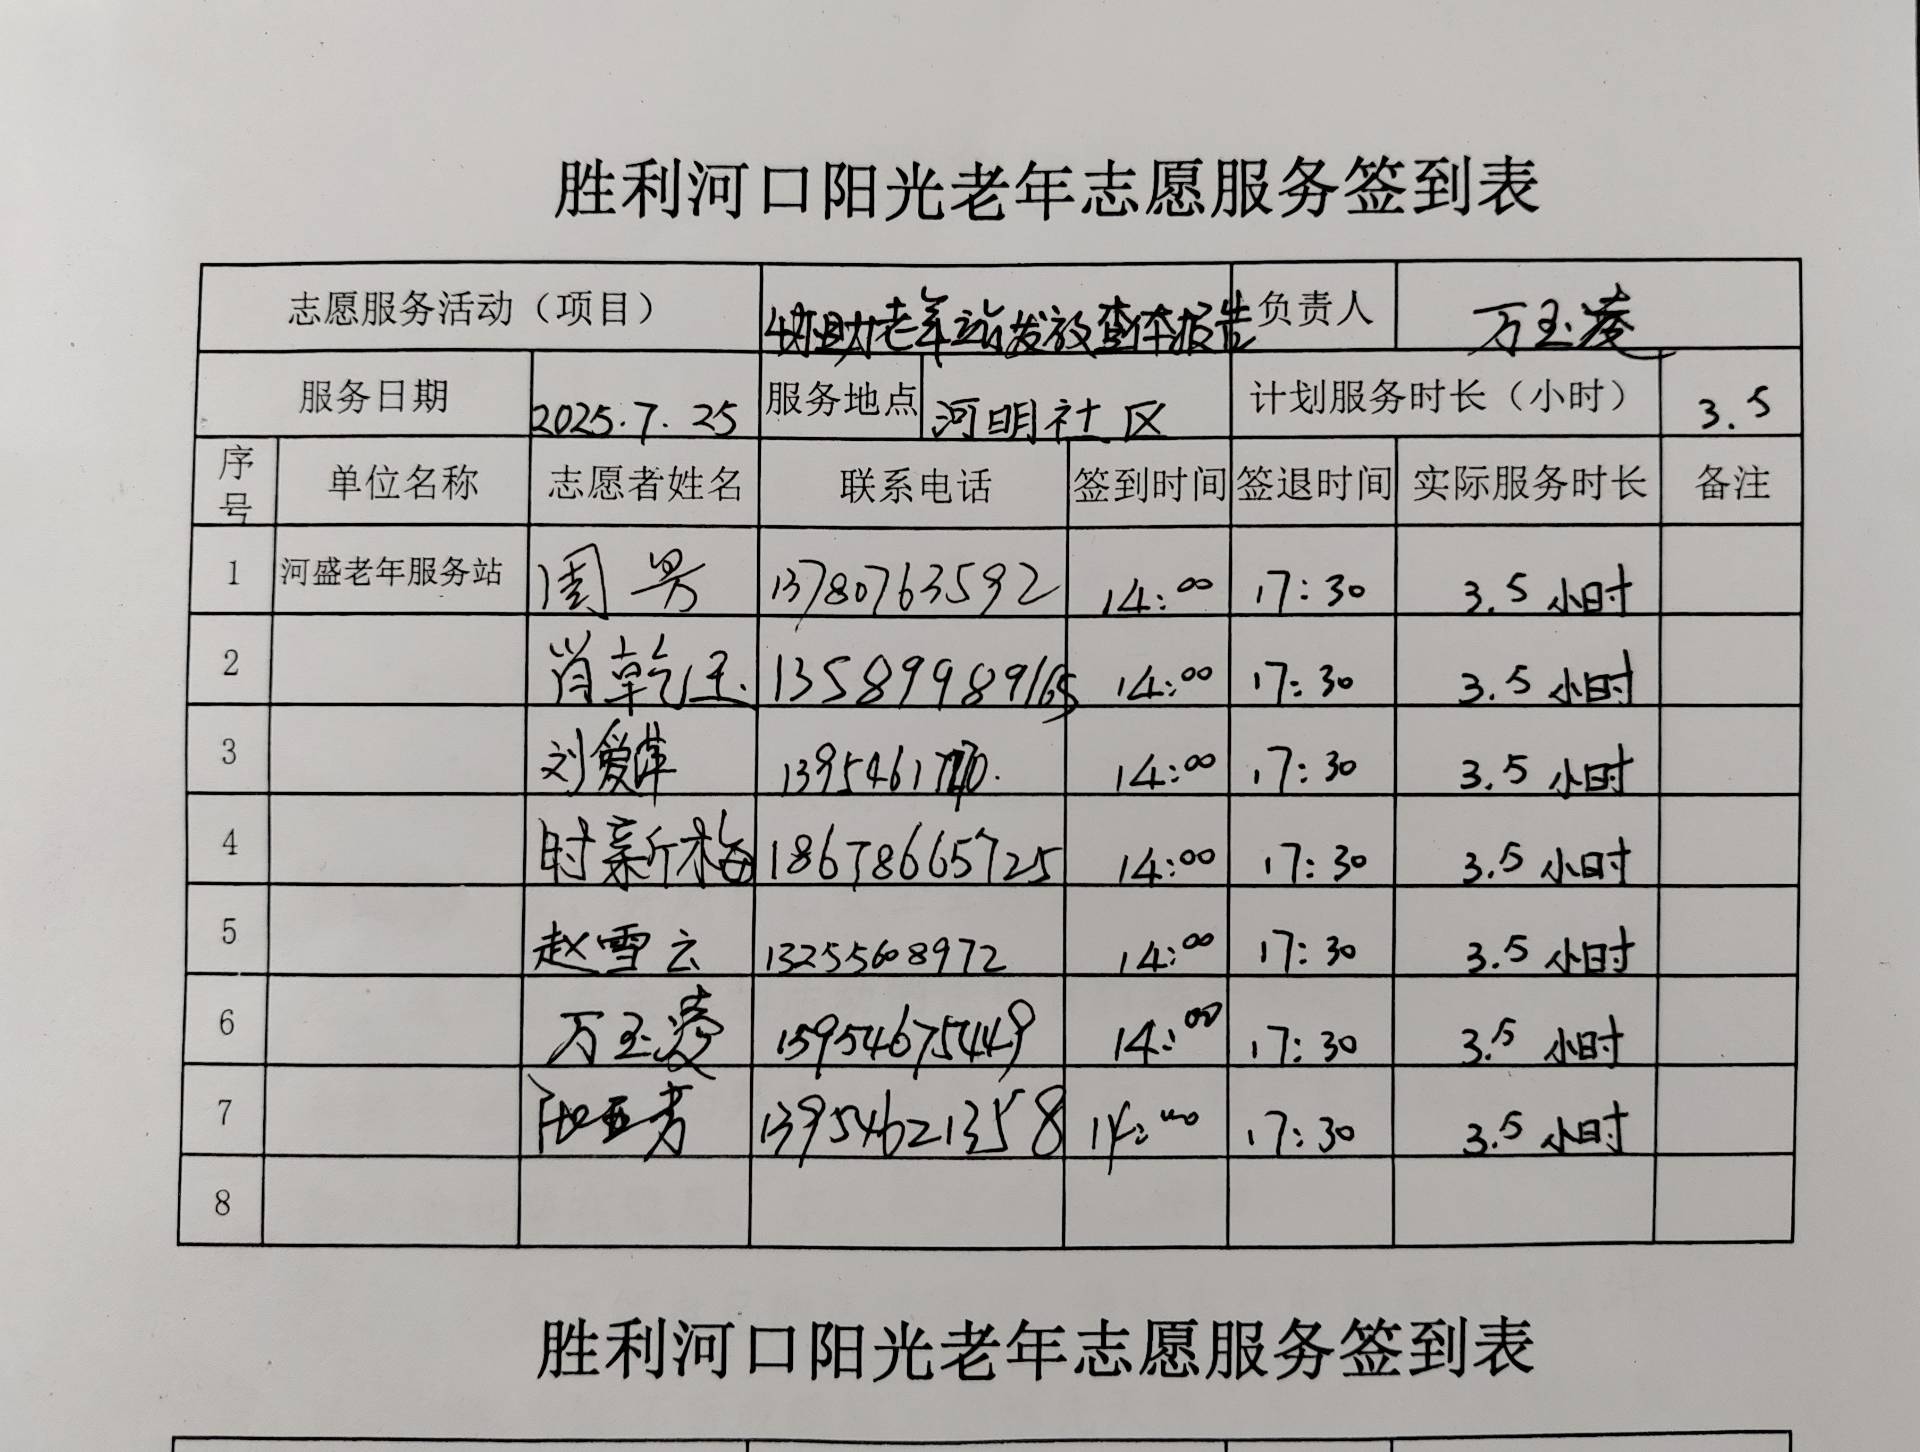 胜利河口阳光老年志愿服务签到表
志愿服务活动（项目） 协助老年站发放查体报告 负责人 万玉凌
服务日期 2025.7.25 服务地点 河明社区 计划服务时长（小时） 3.5
序号 单位名称 志愿者姓名 联系电话 签到时间 签退时间 实际服务时长 备注
1 河盛老年服务站 周 13780763592 14:00 17:30 3.5小时
2 肖乾玉 13589989165 14:00 17:30 3.5小时
3 刘爱萍 14:00 17:30 3.5小时
4 时新梅 18678665725 14:00 17:30 3.5小时
5 赵雪云 13255608972 14:00 17:30 3.5小时
6 万玉凌 15954675449 14:00 17:30 3.5小时
7 13954621358 14:00 17:30 3.5小时
8
胜利河口阳光老年志愿服务签到表